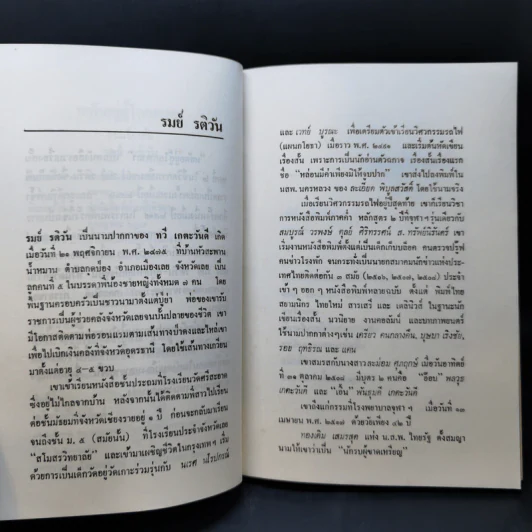 รมย์ รติวัน
รมย์ รติวัน เป็นนามปากกาของ ทวี เกตะวันดี เกิด
เมื่อวันที่ ๒๑ พฤศจิกายน พ.ศ. ๒๔๗๕ ที่บ้านหัวสะพาน
น้ำหมาน ตำบลกุดป่อง อำเภอเมืองเลย จังหวัดเลย เป็น
ลูกคนที่ ๕ ในบรรดาพี่น้องชายหญิงทั้งหมด ๗ คน โดย
พื้นฐานครอบครัวเป็นชาวนามาตั้งแต่ปู่ย่า พ่อของเขารับ
ราชการเป็นผู้ช่วยคลังจังหวัดเลยจนในบั้นปลายของชีวิต เขา
มีโอกาสติดตามพ่อรอนแรมตามเส้นทางป่าดงและไหล่เขา
เพื่อไปเบิกเงินคลังที่จังหวัดอุดรธานี โดยใช้เส้นทางเกวียน
มาตั้งแต่อายุ ๔-๕ ขวบ
เขาเข้าเรียนหนังสือชั้นประถมที่โรงเรียนวัดศรีสะอาด
ซึ่งอยู่ไม่ไกลจากบ้าน หลังจากนั้นได้ติดตามพี่สาวไปเรียน
ต่อชั้นมัธยมที่จังหวัดเชียงรายอยู่ ๑ ปี ก่อนจะกลับมาเรียน
จนถึงชั้น ม. ๕ (สมัยนั้น) ที่โรงเรียนประจำจังหวัดเลย
"สโมสรวิทยาลัย" และเข้ามาเผชิญชีวิตในกรุงเทพฯ เริ่ม
ด้วยการเป็นเด็กวัดอยู่วัดเกาะร่วมรุ่นกับ นเรศ นโรปกรณ์
และ เวทย์ บูรณะ เพื่อเตรียมตัวเข้าเรียนวิศวกรรมรถไฟ
(แผนกโยธา) เมื่อราว พ.ศ. ๒๔๙๑ และเริ่มต้นหัดเขียน
เรื่องสั้น เพราะการเป็นนักอ่านตัวกลางฯ เรื่องสั้นเรื่องแรก
ชื่อ "พลอยนี้ค่าเพียงมิให้จูบปาก" เขาส่งไปลงพิมพ์ใน
นสพ. นครหลวง ของ ละเอียด พิบูลสวัสดิ์ โดยใช้นามจริง
เมื่อเรียนวิศวกรรมรถไฟปีสุดท้าย เขาก็เรียนวิชา
การหนังสือพิมพ์ภาคค่ำ หลักสูตร ๒ ปีที่จุฬาฯรุ่นเดียวกับ
สมบูรณ์ วรพงษ์ ดุลย์ ศิริกรรณ์ อ. ทรัพย์นิรันดร์ เขา
เริ่มงานหนังสือพิมพ์ตั้งแต่เป็นเด็กเก็บบล็อก คนตรวจปรู๊ฟ
คนข่าวโรงพัก จนกระทั่งเป็นนายกสมาคมนักข่าวแห่งประ-
เทศไทยติดต่อกัน ๓ สมัย (๒๕๑๖, ๒๕๑๗, ๒๕๑๘) ประจำ
เช้า ๆ ออก ๆ หนังสือพิมพ์หลายฉบับ ตั้งแต่ พิมพ์ไทย
สยามนิกร ไทยใหม่ สารเสรี และ เดลินิวส์ ในฐานะนัก
เขียนเรื่องสั้น นวนิยาย งานคอลัมน์ และบทภาพยนตร์
ใช้นามปากกาต่างๆเช่น เครียว คนกลางคืน, บุษบา เริงชัย,
รอย ฤทธิรณ และ แคน
เขาสมรสกับนางสาวละม่อม ศุภฤกษ์ เมื่อวันอาทิตย์
ที่ ๓๑ ตุลาคม ๒๕๐๘ มีบุตร ๒ คนคือ "อ๊อบ" พลวุธ
เกตะวันดี และ "เอ็น" พันธุมดี เกตะวันดี
เขาถึงแก่กรรมที่โรงพยาบาลจุฬาฯ เมื่อวันที่ ๑๓
เมษายน พ.ศ. ๒๕๑๘ ด้วยวัยเพียง ๔๒ ปี
ทองเติม เสมรสุต แห่ง น.ส.พ. ไทยรัฐ ตั้งสมญา
นามให้เขาว่าเป็น "นักรบผู้ขาดเหรียญ"